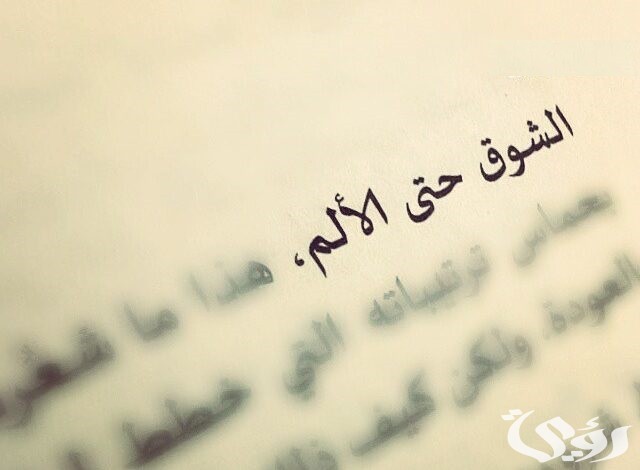 الشوق حتى الألم، هذا ما
بحماس ترتيباته التي خطط
العودة، ولكن كيف
رؤية